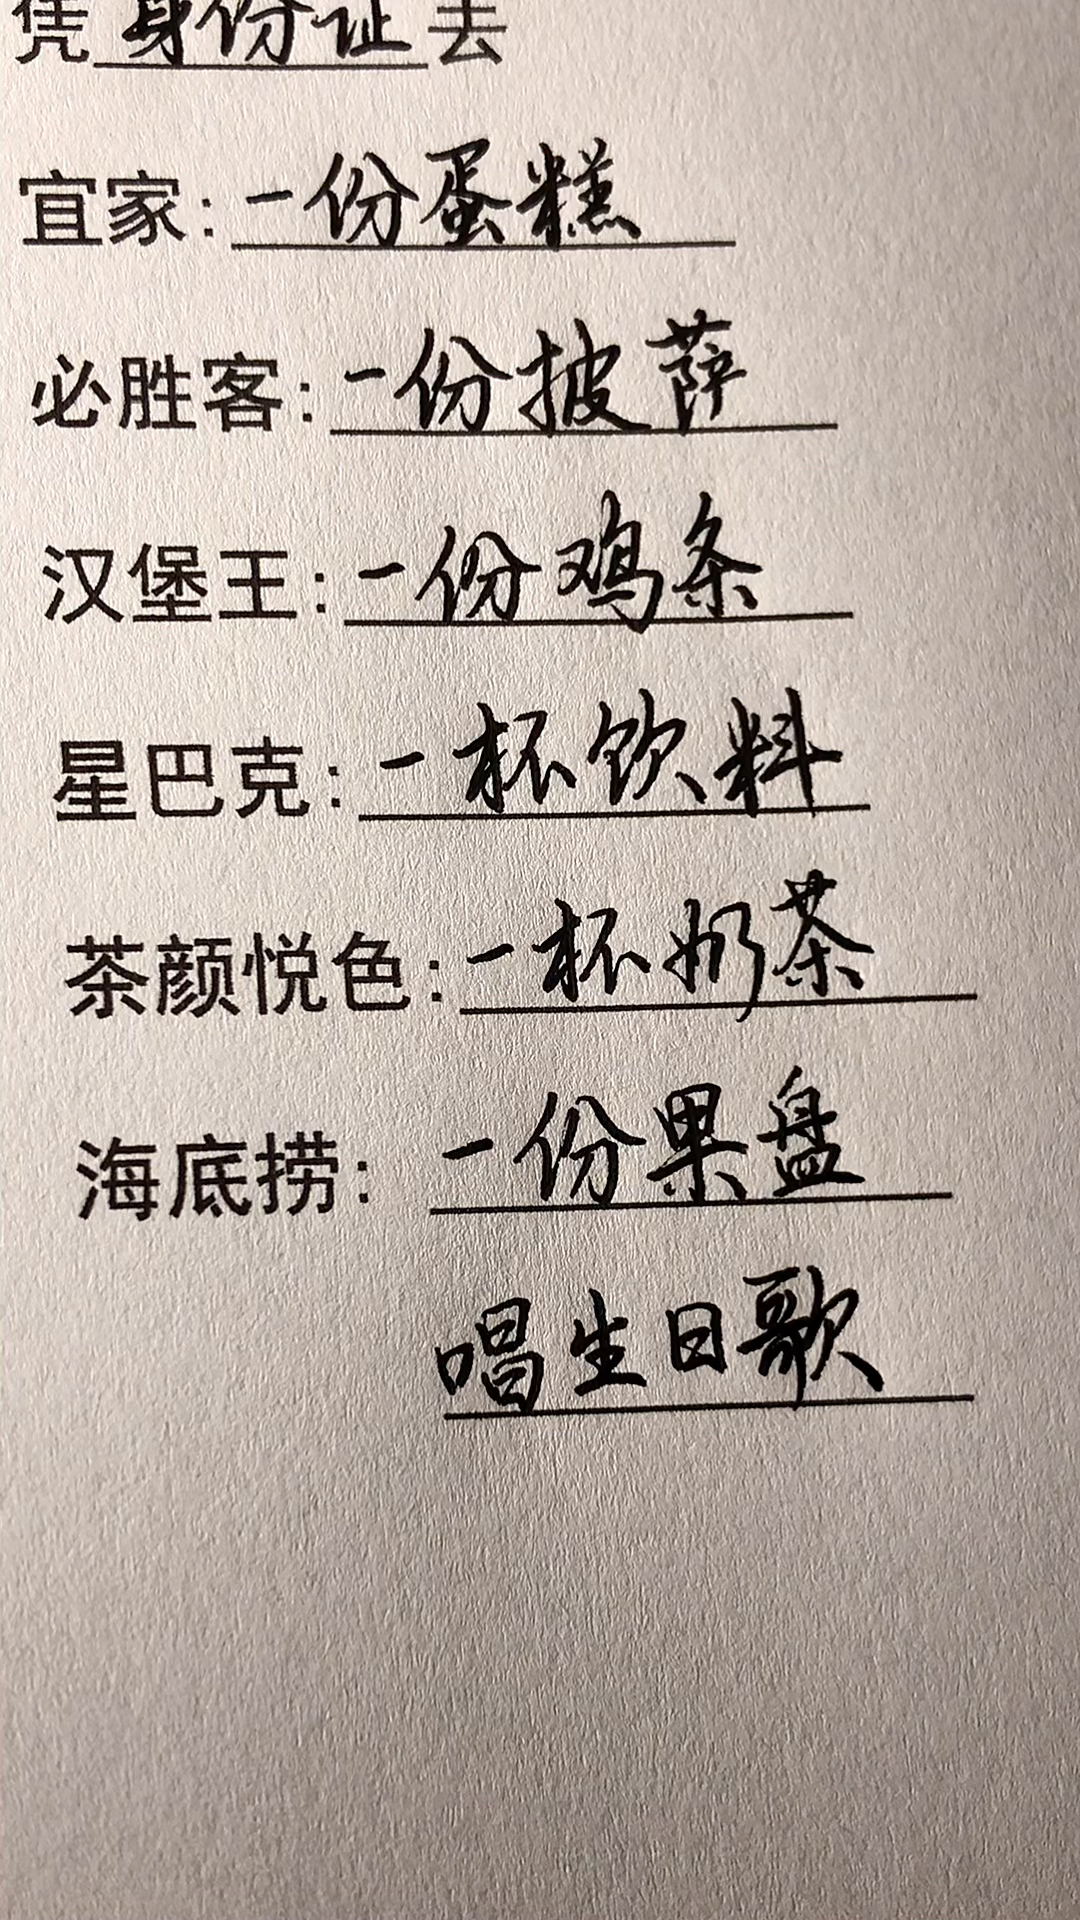 凭身份证去
宜家:一份蛋糕
必胜客:一份披萨
汉堡王:一份鸡条
星巴克:一杯饮料
茶颜悦色:一杯奶茶
海底捞:一份果盘
唱生日歌